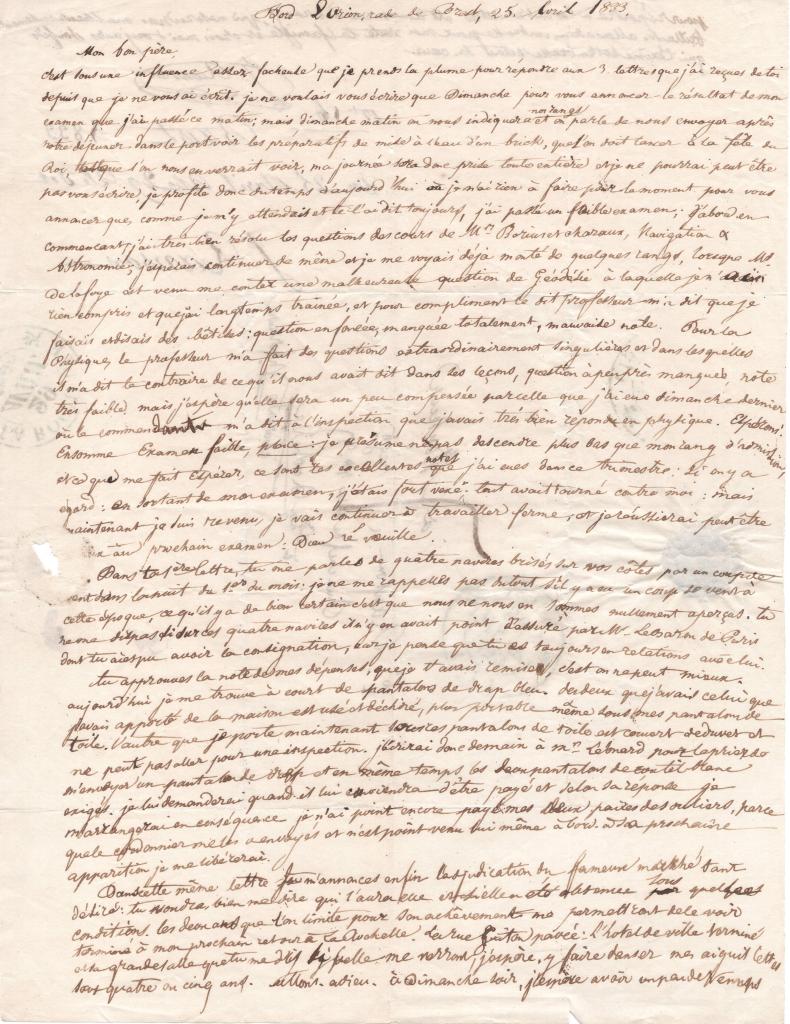 Bord Orion, rade de Brest, 25. Avril 1833.
Mon bon père,
c'est sous une influence assez facheuse que je prends la plume pour répondre aux 3 lettres que j'ai reçues de toi
depuis que je ne vous ai écrit. je ne voulais vous écrire que Dimanche pour vous annoncer le résultat de mon
examen que j'ai passé ce matin; mais dimanche matin on nous indiquera nos rangs et on parle de nous envoyer après
notre déjeuner dans le port voir les préparatifs de mise à l'eau d'un brick, que l'on doit lancer à la fête du
Roi, l'on nous enverrait voir, ma journée sera donc prise toute entière et je ne pourrai peut être
pas vous écrire, je profite donc du temps d'aujourd'hui où je n'ai rien à faire pour le moment pour vous
annoncer que, comme je m'y attendais et te l'ai dit toujours, j'ai passé un faible examen; d'abord en
commençant j'ai très bien résolu les questions des cours de Mrs Borius et chazaux, Navigation &
Astronomie; j'espérais continuer de même et je me voyais déjà monté de quelques rangs, lorsque Mr
Delafoye est venu me conter une malheureuse question de Géodésie à laquelle je n'ai
rien compris et que j'ai longtemps trainée, et pour compliment ce dit professeur m'a dit que je
faisais et disais des bêtises: question enfoncée, manquée totalement, mauvaise note. Pour la
Physique, le professeur m'a fait des questions extraordinairement singulières et dans lesquelles
il m'a dit le contraire de ce qu'il nous avait dit dans ses leçons, question à peu près manquée, note
très faible, mais j'espère qu'elle sera un peu compensée par celle que j'ai eue dimanche dernier
où le commandant m'a dit à l'inspection que j'avais très bien répondu en physique. Espérons!
Ensomme Examen faible, place: je présume ne pas descendre plus bas que mon rang d'admission,
et ce que me fait espérer, ce sont les excellentes notes que j'ai eues dans ce trimestre: si on y a
égard: en sortant de mon examen, j'étais fort vexé: tout avait tourné contre moi: mais
maintenant je suis revenu, je vais continuer à travailler ferme, et je réussirai peut être
mieux au prochain examen: Dieu le veuille.
Dans ta 1ère lettre, tu me parles de quatre navires brisés sur vos côtes par un coup de
vent dans la nuit du 1er du mois: je ne me rappelles pas du tout s'il y a eu un coup de vent à
cette époque, ce qu'il y a de bien certain c'est que nous ne nous en sommes nullement aperçus. tu
ne me dis pas si sur ces quatre navires il n'y en avait point d'assuré par Mr. Lebarm de Paris
dont tu aies pu avoir la consignation, car je pense que tu es toujours en relations avec lui.
tu approuves la note de mes dépenses, que je t'avais remise, c'est on ne peut mieux.
aujourd'hui je me trouve à court de pantalons de drap bleu. des deux que j'avais celui que
j'avais apporté de la maison est usé et déchiré, plus portable même sous mes pantalons de
toile. l'autre que je porte maintenant sous les pantalons de toile est couvert de duvet et
ne peut pas aller pour une inspection. j'écrirai donc demain à Mr Lebnard pour le prier de
m'envoyer un pantalon de drap et en même temps les deux pantalons de coutil blanc
exigés. je lui demanderai quand il lui conviendra d'être payé et selon sa réponse je
m'arrangerai en conséquence. je n'ai point encore payé mes deux paires de souliers, parce
que le cordonnier me les a envoyés et n'est point venu lui même à bord. à sa prochaine
apparition je me libérerai.
Dans cette même lettre tu m'annonces enfin l'adjudication du fameux marché tant
désiré: tu voudras bien me dire qui l'aura eue et s'il en a été obtenue sous quelques
conditions. les deux ans que l'on limite pour son achèvement me permettront de le voir
terminé à mon prochain retour à la Rochelle. la rue Guiton pavée: l'hotel de ville terminé
et sa grande salle que tu me dis si belle me verront, j'espère, y faire danser mes aiguillettes
sous quatre ou cinq ans. allons. adieu. à Dimanche soir, j'espère avoir un peu de temps